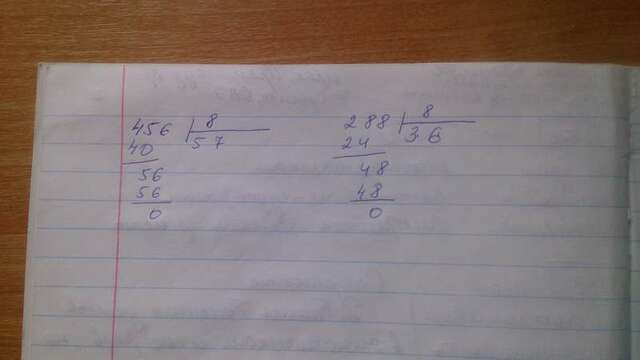 456 8 288 8
40 57 24 36
56 48
56 48
0 0